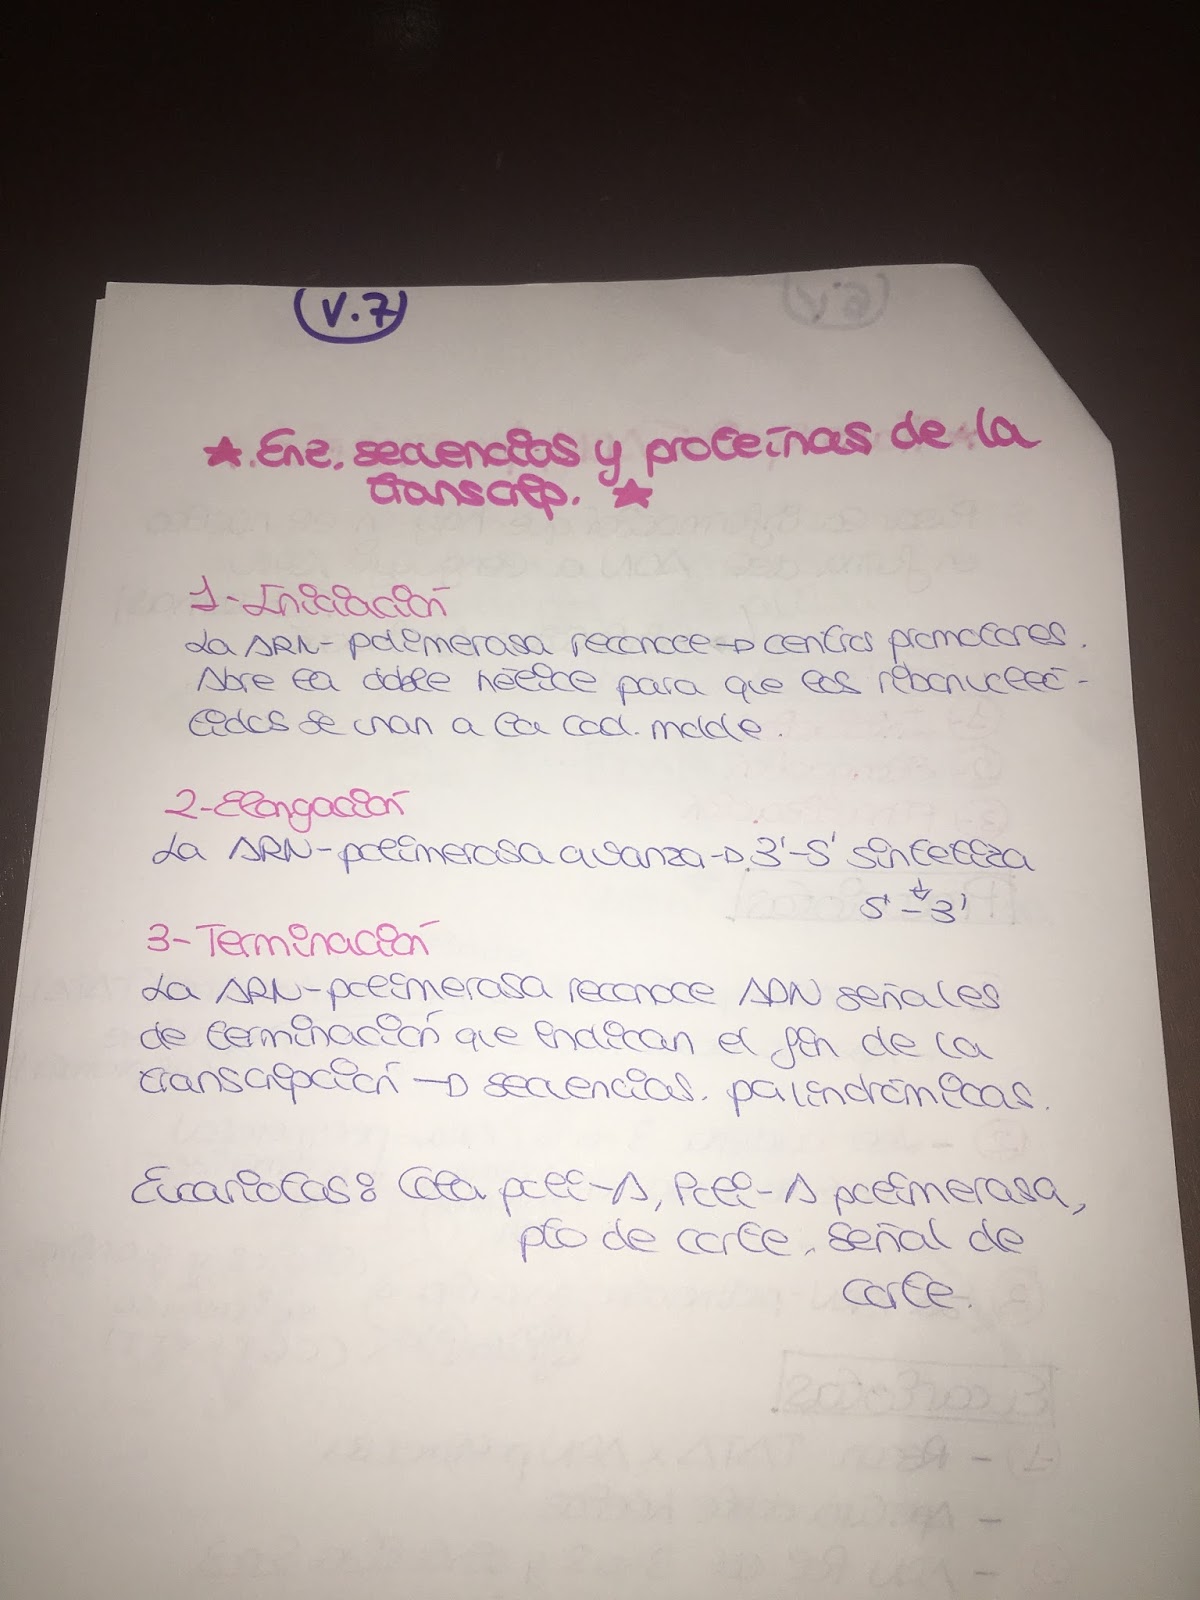 V.7
★. Enz. secuencias y proteínas de la
transcrip. ★
1-Iniciación
La ARN-polimerasa reconoce → centros promotores.
Abre la doble hélice para que los ribonucleó-
tidos se unan a la cad. molde.
2-Elongación
La ARN-polimerasa avanza → 3'-5' sintetiza
↓
5'-3'
3-Terminación
La ARN-polimerasa reconoce ADN señales
de terminación que indican el fin de la
transcripción → secuencias. palindrómicas.
Eucariotas: Cola poli-A, Poli-A polimerasa,
pto de corte, señal de
corte.